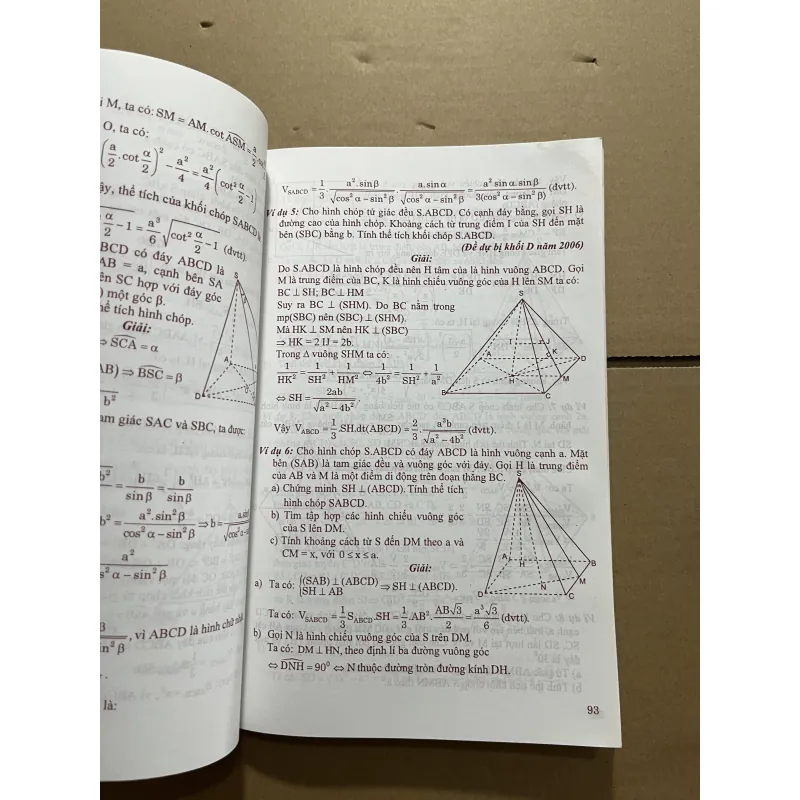 i M, ta có: SM = AM.cot ASM =
O, ta có:
(a/2 .cot α/2)² − a²/4 = a²/4 (cot² α/2 − 1)
ậy, thể tích của khối chóp SABCD
α/2 − 1 = a³/6 √(cot² α/2 − 1) (đvtt).
BCD có đáy ABCD là
AB = a, cạnh bên SA
ên SC hợp với đáy góc
) một góc β.
hể tích hình chóp.
Giải:
⇒ SCA = α
AB) ⇒ BSC = β
b²
am giác SAC và SBC, ta được:
b/sin β = b/sin β
b² = a².sin²β/(cos²α − sin²β) ⇒ b =
a²
s²α − sin²β
in²β, vì ABCD là hình chữ nhật
là:
V_SABCD = 1/3 . a².sinβ/√(cos²α − sin²β) . a.sinα/√(cos²α − sin²β) = a² sinα.sinβ/3(cos²α − sin²β) (đvtt).
Ví dụ 5: Cho hình chóp tứ giác đều S.ABCD. Có cạnh đáy bằng, gọi SH là
đường cao của hình chóp. Khoảng cách từ trung điểm I của SH đến mặt
bên (SBC) bằng b. Tính thể tích khối chóp S.ABCD.
(Đề dự bị khối D năm 2006)
Giải:
Do S.ABCD là hình chóp đều nên H tâm của là hình vuông ABCD. Gọi
M là trung điểm của BC, K là hình chiếu vuông góc của H lên SM ta có:
BC ⊥ SH; BC ⊥ HM
Suy ra BC ⊥ (SHM). Do BC nằm trong
mp(SBC) nên (SBC) ⊥ (SHM).
Mà HK ⊥ SM nên HK ⊥ (SBC)
⇒ HK = 2 IJ = 2b.
Trong Δ vuông SHM ta có:
1/HK² = 1/SH² + 1/HM² ⇔ 1/4b² = 1/SH² + 1/a²
⇔ SH = 2ab/√(a² − 4b²).
Vậy V_ABCD = 1/3 .SH.dt(ABCD) = 2/3 . a³b/√(a² − 4b²) (đvtt).
S
I
J
A
K
D
H
M
B
C
Ví dụ 6: Cho hình chóp S.ABCD có đáy ABCD là hình vuông cạnh a. Mặt
bên (SAB) là tam giác đều và vuông góc với đáy. Gọi H là trung điểm
của AB và M là một điểm di động trên đoạn thẳng BC.
a) Chứng minh SH ⊥ (ABCD). Tính thể tích
hình chóp SABCD.
b) Tìm tập hợp các hình chiếu vuông góc
của S lên DM.
c) Tính khoảng cách từ S đến DM theo a và
CM = x, với 0 ≤ x ≤ a.
Giải:
S
A
H
B
M
N
D
C
a) Ta có: {(SAB) ⊥ (ABCD) SH ⊥ AB ⇒ SH ⊥ (ABCD).
Ta có: V_SABCD = 1/3 S_ABCD.SH = 1/3 .AB². AB√3/2 = a³√3/6 (đvtt).
b) Gọi N là hình chiếu vuông góc của S trên DM.
Ta có: DM ⊥ HN, theo định lí ba đường vuông góc
⇔ DNH = 90⁰ ⇔ N thuộc đường tròn đường kính DH.
93